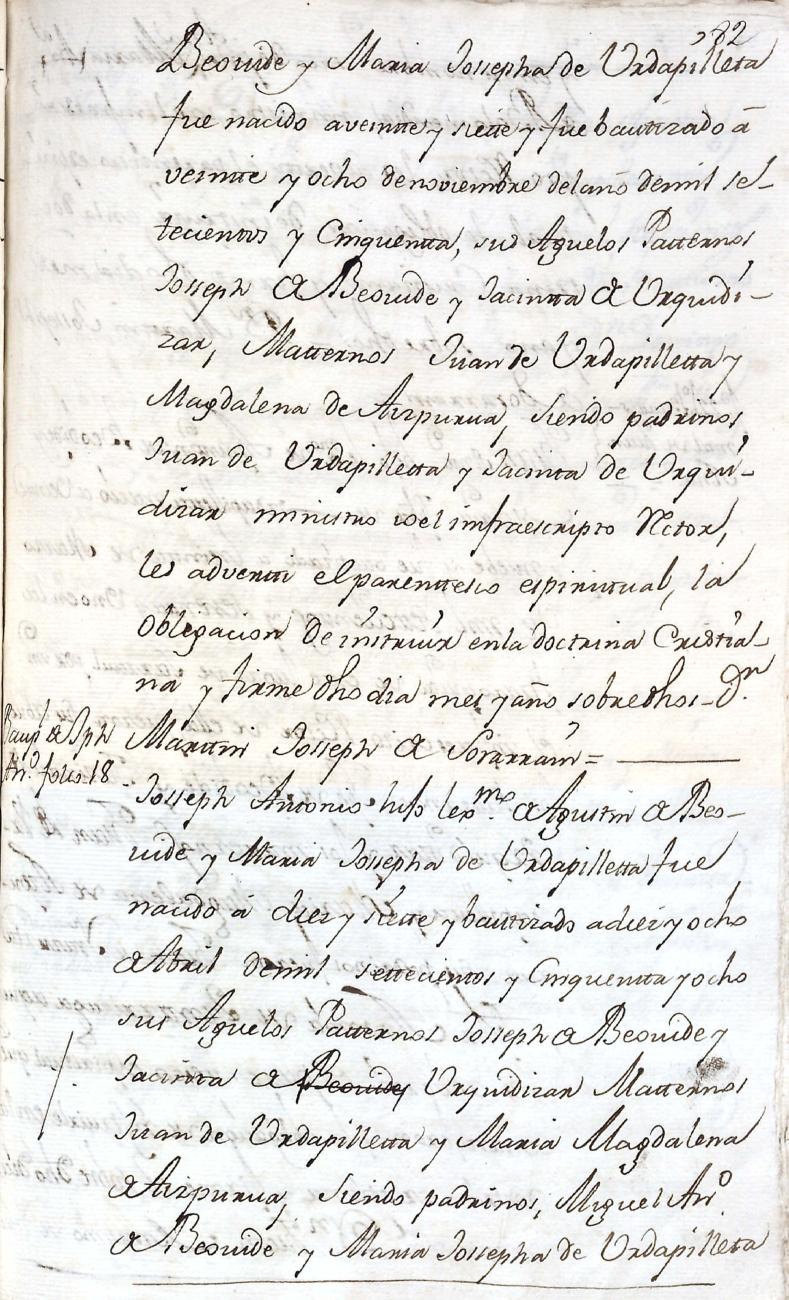 82
Beovide y Maria Josepha de Urdapilleta
fue nacido a veintte y siette y fue bautizado â
veintte y ocho de noviembre del año de mil set-
tecientos y Cinquentta, sus Aguelos Patternos
Joseph de Beovide y Jacintta de Urquidi-
zar, Matternos Juan de Urdapilletta y
Magdalena de Aizpurua, siendo padrinos
Juan de Urdapilletta y Jacinta de Urqui-
dizar ministro io el infraescripto Rector,
les advertti el parenttesco espiritual, la
obligacion de instruir en la doctrina Cristia-
na y firme dho dia mes y año sobredhos - Dn
Martin Joseph de Sorarrain =
Baup de Jph
Anº folio 18
Joseph Antonio hijo lexmo de Agustin de Beo-
vide y Maria Josepha de Urdapilletta fue
nacido â diez y siette y bauttizado a diez y ocho
de Abril de mil settecientos y Cinquentta y ocho
sus Aguelos Patternos Joseph de Beovide y
Jacintta de Beovide Urquidizar Matternos
Juan de Urdapilletta y Maria Magdalena
de Aizpurua, siendo padrinos, Miguel Anº
de Beovide y Maria Josepha de Urdapilleta